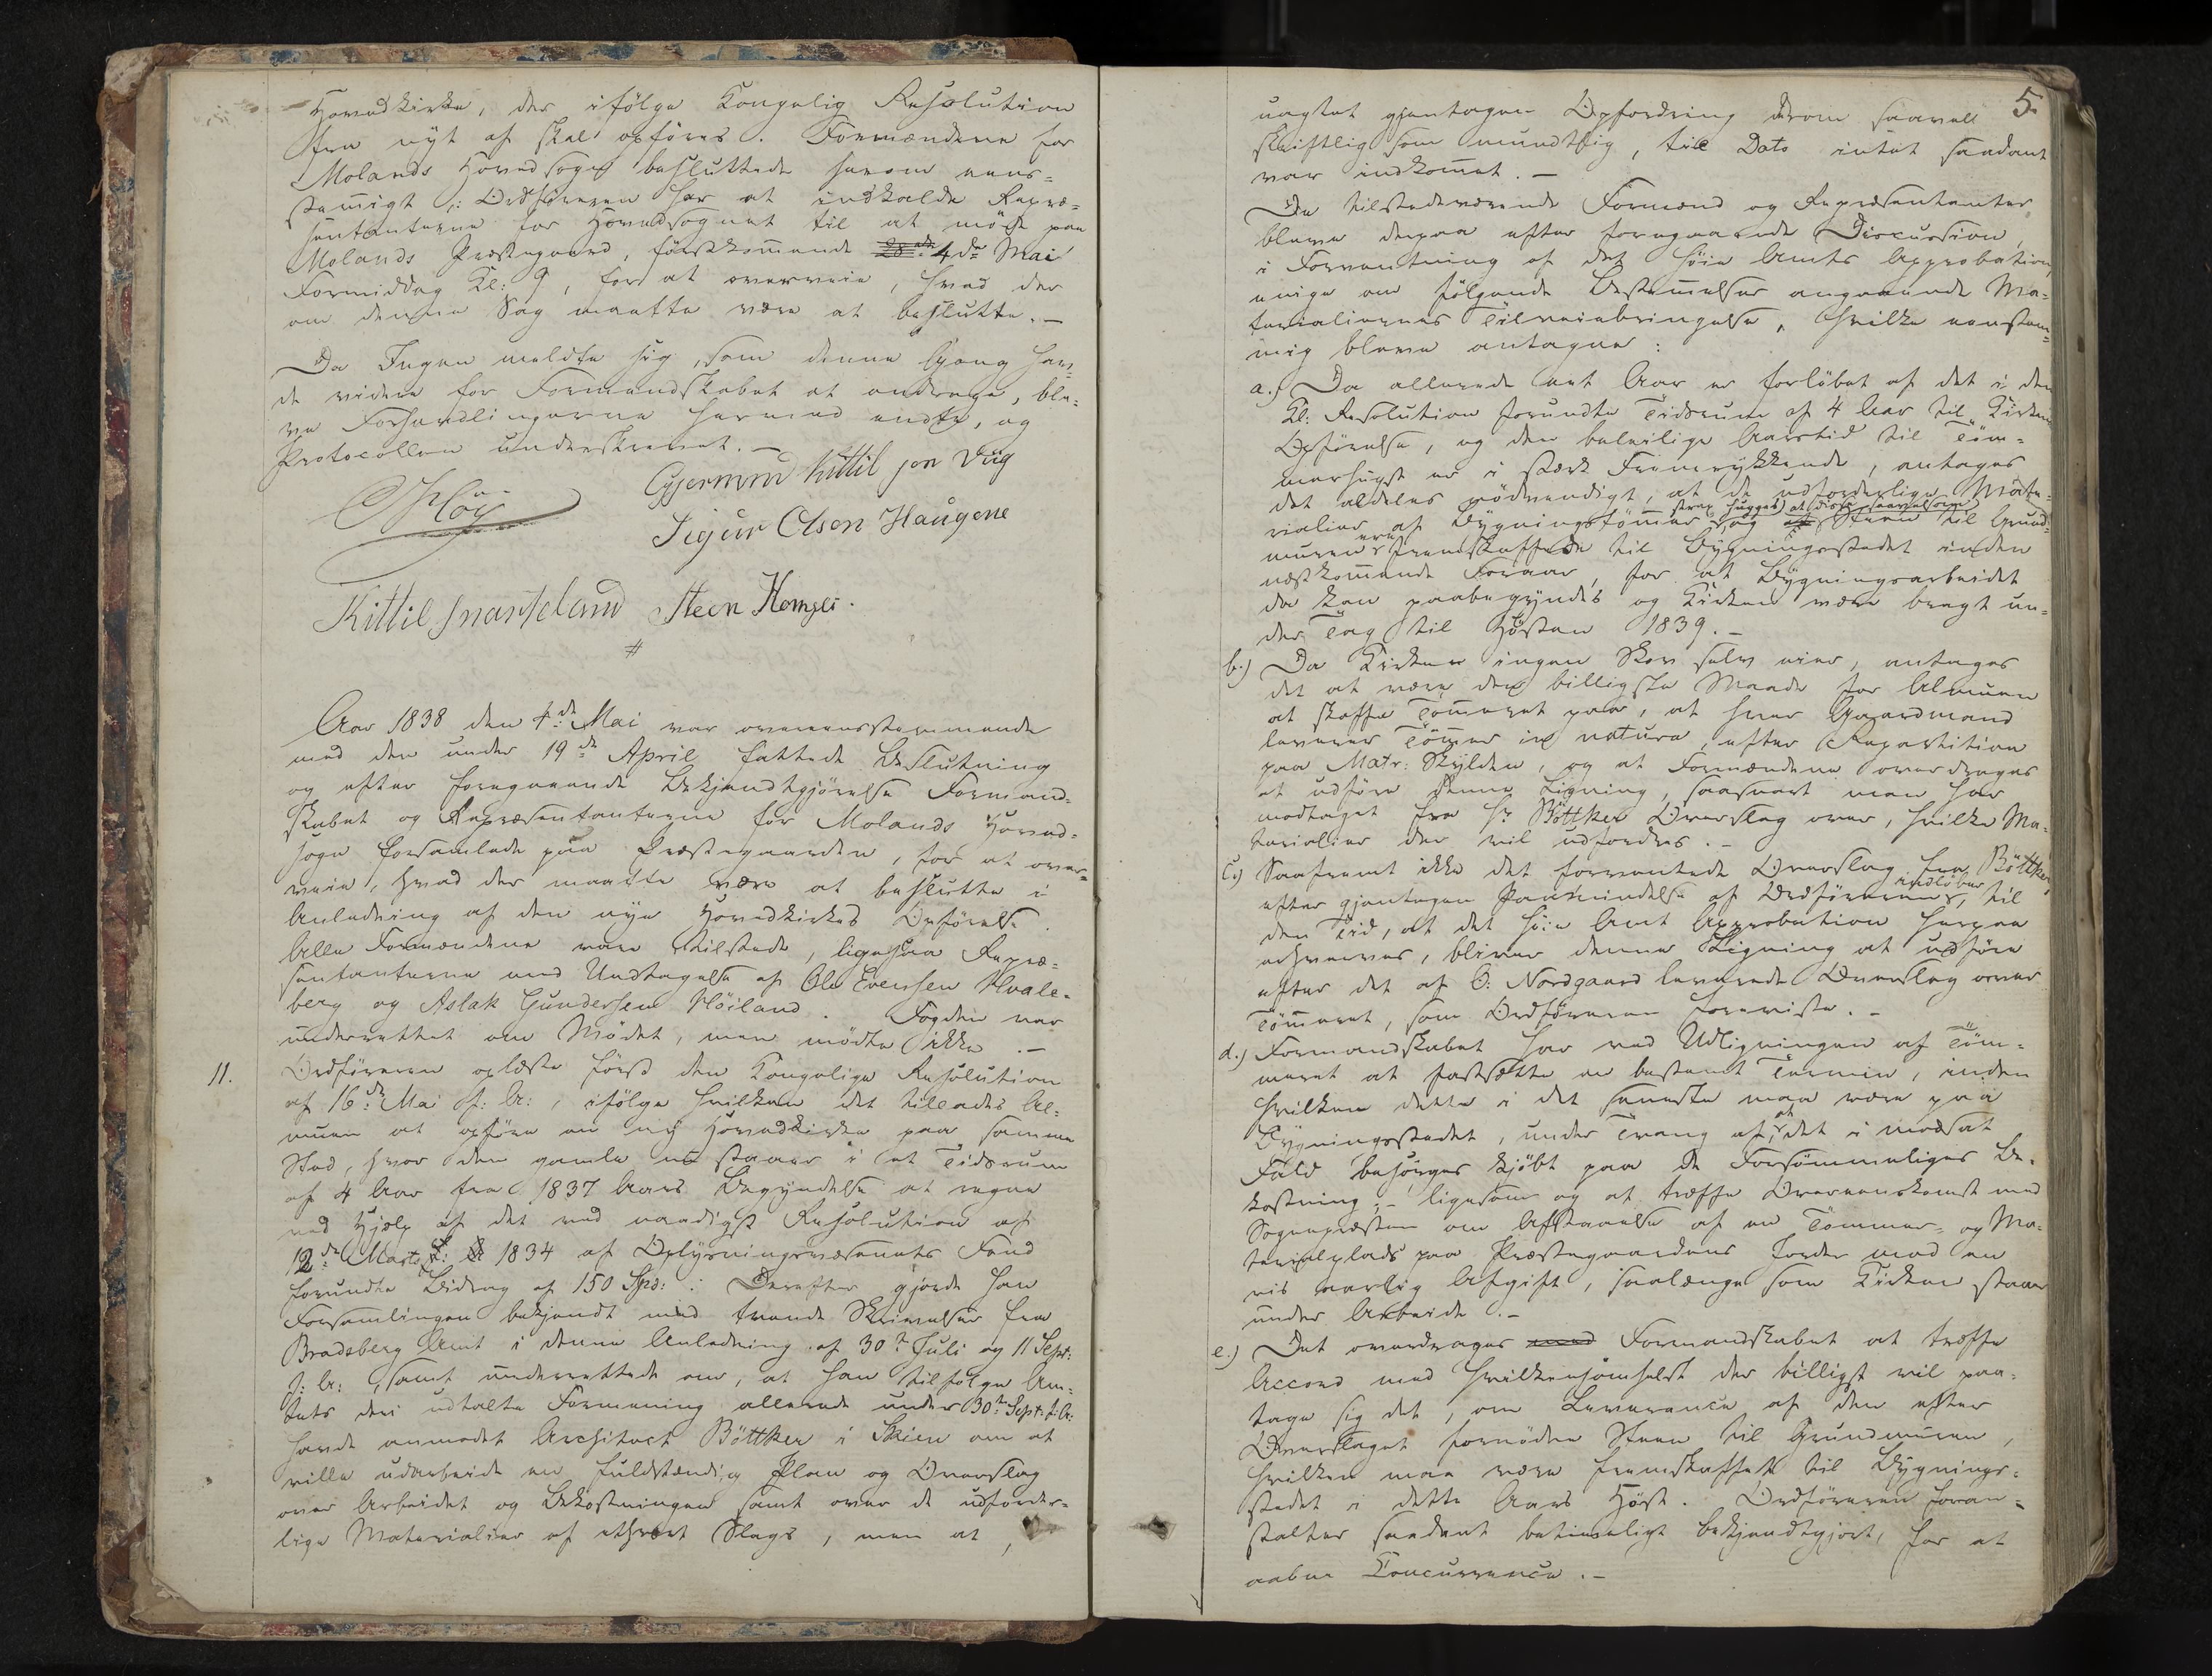 Hovedkirke, der ifölge Kongelig Resolution
fra nyt af skal opföres. Formændene for
Molands Hovedsogn besluttede herom eens=
stem̄igt: Ordföreren har at indkalde Repræ=
sentanterne for Hovedsognet til at möde paa
Molands Præstegaard, förstkom̄ende 28de 4de Mai
Formiddag Kl: 9, for at overveie, hvad der
om denne Sag maatte være at beslutte. –
Da Ingen meldte sig, som denne Gang hav=
de videre for Formandskabet at andrage, ble=
ve Forhandlingerne hermed endte, og
Protocollen underskrevet. –
Gjermund Kittil jon Viig
Sigur Olsen Haugene
Kittil Snarteland Steen Homlei.
#
Aar 1838 den 4de Mai var overeensstemmende
med den under 19de April fattede Beslutning
og efter foregaaende Bekjendtgjörelse Formand=
skabet og Repræsentanterne for Molands Hoved=
sogn forsamlede paa Præstegaarden, for at over=
veie, hvad der maatte være at beslutte i
Anledning af den nye Hovedkirkes Opförelse.
Alle Formændene vare tilstede, ligesaa Repræ=
sentanterne med Undtagelse af Ole Evensen Hvale=
berg og Aslak Gundersen Höiland. Fogden var
underrettet om Mödet, men mödte ikke. –
11. Ordföreren oplæste först den Kongelige Resolution
af 16de Mai f: A:, ifölge hvilken det tillades Al=
muen at opföre en ny Hovedkirke paa samme
Sted, hvor den gamle nu staaer i et Tidsrum
af 4 Aar fra 1837 Aars Begyndelse at regne
ved Hjelp af det ved naadigst Resolution af
12de Marts 1834 af Oplysningsvæsenets Fond
forundte Bidrag af 150 Spd: Derefter gjorde han
Forsamlingen bekjendt med tvende Skrivelser fra
Bradsberg Amt i denne Anledning af 30te Juli og 11 Sept:
f: A:, samt underrettede om, at han tilfölge Am=
tets deri udtalte Formening allerede under 30te Sept: f: A:
havde anmodet Architect Böttker i Skien om at
ville udarbeide en fuldstændig Plan og Overslag
over Arbeidet og Bekostningen samt over de udforder=
lige Materialier af ethvert Slags, men at,
5.
uagtet gjentagen Opfordring derom saavel
skriftlig som mundtlig, til Dato intet saadant
var indkom̄et. –
De tilstedeværende Formænd og Repræsentanter
bleve derpaa efter foregaaende Discussion,
i Forventning af det höie Amts Approbation,
enige om fölgende Bestem̄elser angaaende Ma=
terialiernes Tilveiebringelse, hvilke eenstem=
mig bleve antagne:
a.) Da allerede eet Aar er forlöbet af det i den
Kl: Resolution forundte Tidsrum af 4 Aar til Kirkens
Opförelse, og den beleilige Aarstid til Töm=
merhugst er i stærk Fremrykkende, antages
det aldeles nödvendigt, at de udforderlige Mate=
strax hugges, at disse saavelsom
rialier af Bygningstöm̄er og af Steen til Grund=
muren ere fremskaffede til Bygningsstedet inden
næstkom̄ende Foraar, for at Bygningsarbeidet
da kan paabegyndes og Kirken være bragt un=
der Tag til Hösten 1839. –
b.) Da Kirken ingen Skov selv eier, antages
det at være den billigste Maade for Almuen
at skaffe Töm̄eret paa, at hver Gaardmand
leverer Töm̄er in natura, efter Repartition
paa Matr: Skylden, og at Formændene overdrages
at udföre denne Ligning, saasnart man har
modtaget fra Hr Böttker Overslag over, hvilke Ma=
terialier der vil udfordres. –
c.) Saafremt ikke det forventede Overslag fra Böttker,
efter gjentagen Paamindelse af Ordföreren, indlöber til
den Tid, at det höie Amt Approbation herpaa
erhverves, bliver denne Ligning at udföre
efter det af O: Nordgaard leverede Overslag over
Töm̄eret, som Ordföreren foreviste. –
d.) Formandskabet har ved Udligningen af Töm=
meret at fastsætte en bestemt Termin, inden
hvilken dette i det seneste maa være paa
Bygningsstedet, under Tvang af, at det i modsat
Fald besörges kjöbt paa de Forsömmeliges Be=
kostning; – ligesom og at træffe Overeenskomst med
Sognepræsten om Afstaaelse af en Tömmer= og Ma=
terialplads paa Præstegaardens Jorder mod en
vis aarlig Afgift, saalænge som Kirken staaer
under Arbeide. –
e.) Det overdrages med Formandskabet at træffe
Accord med hvilkensomhelst der billigst vil paa=
tage sig det, om Leverance af den efter
Overslaget fornödne Steen til Grundmuren,
hvilken maa være fremskaffet til Bygnings=
stedet i dette Aars Höst. Ordföreren foran=
stalter saadant betimeligt bekjendtgjort, for at
aabne Concurrence. –